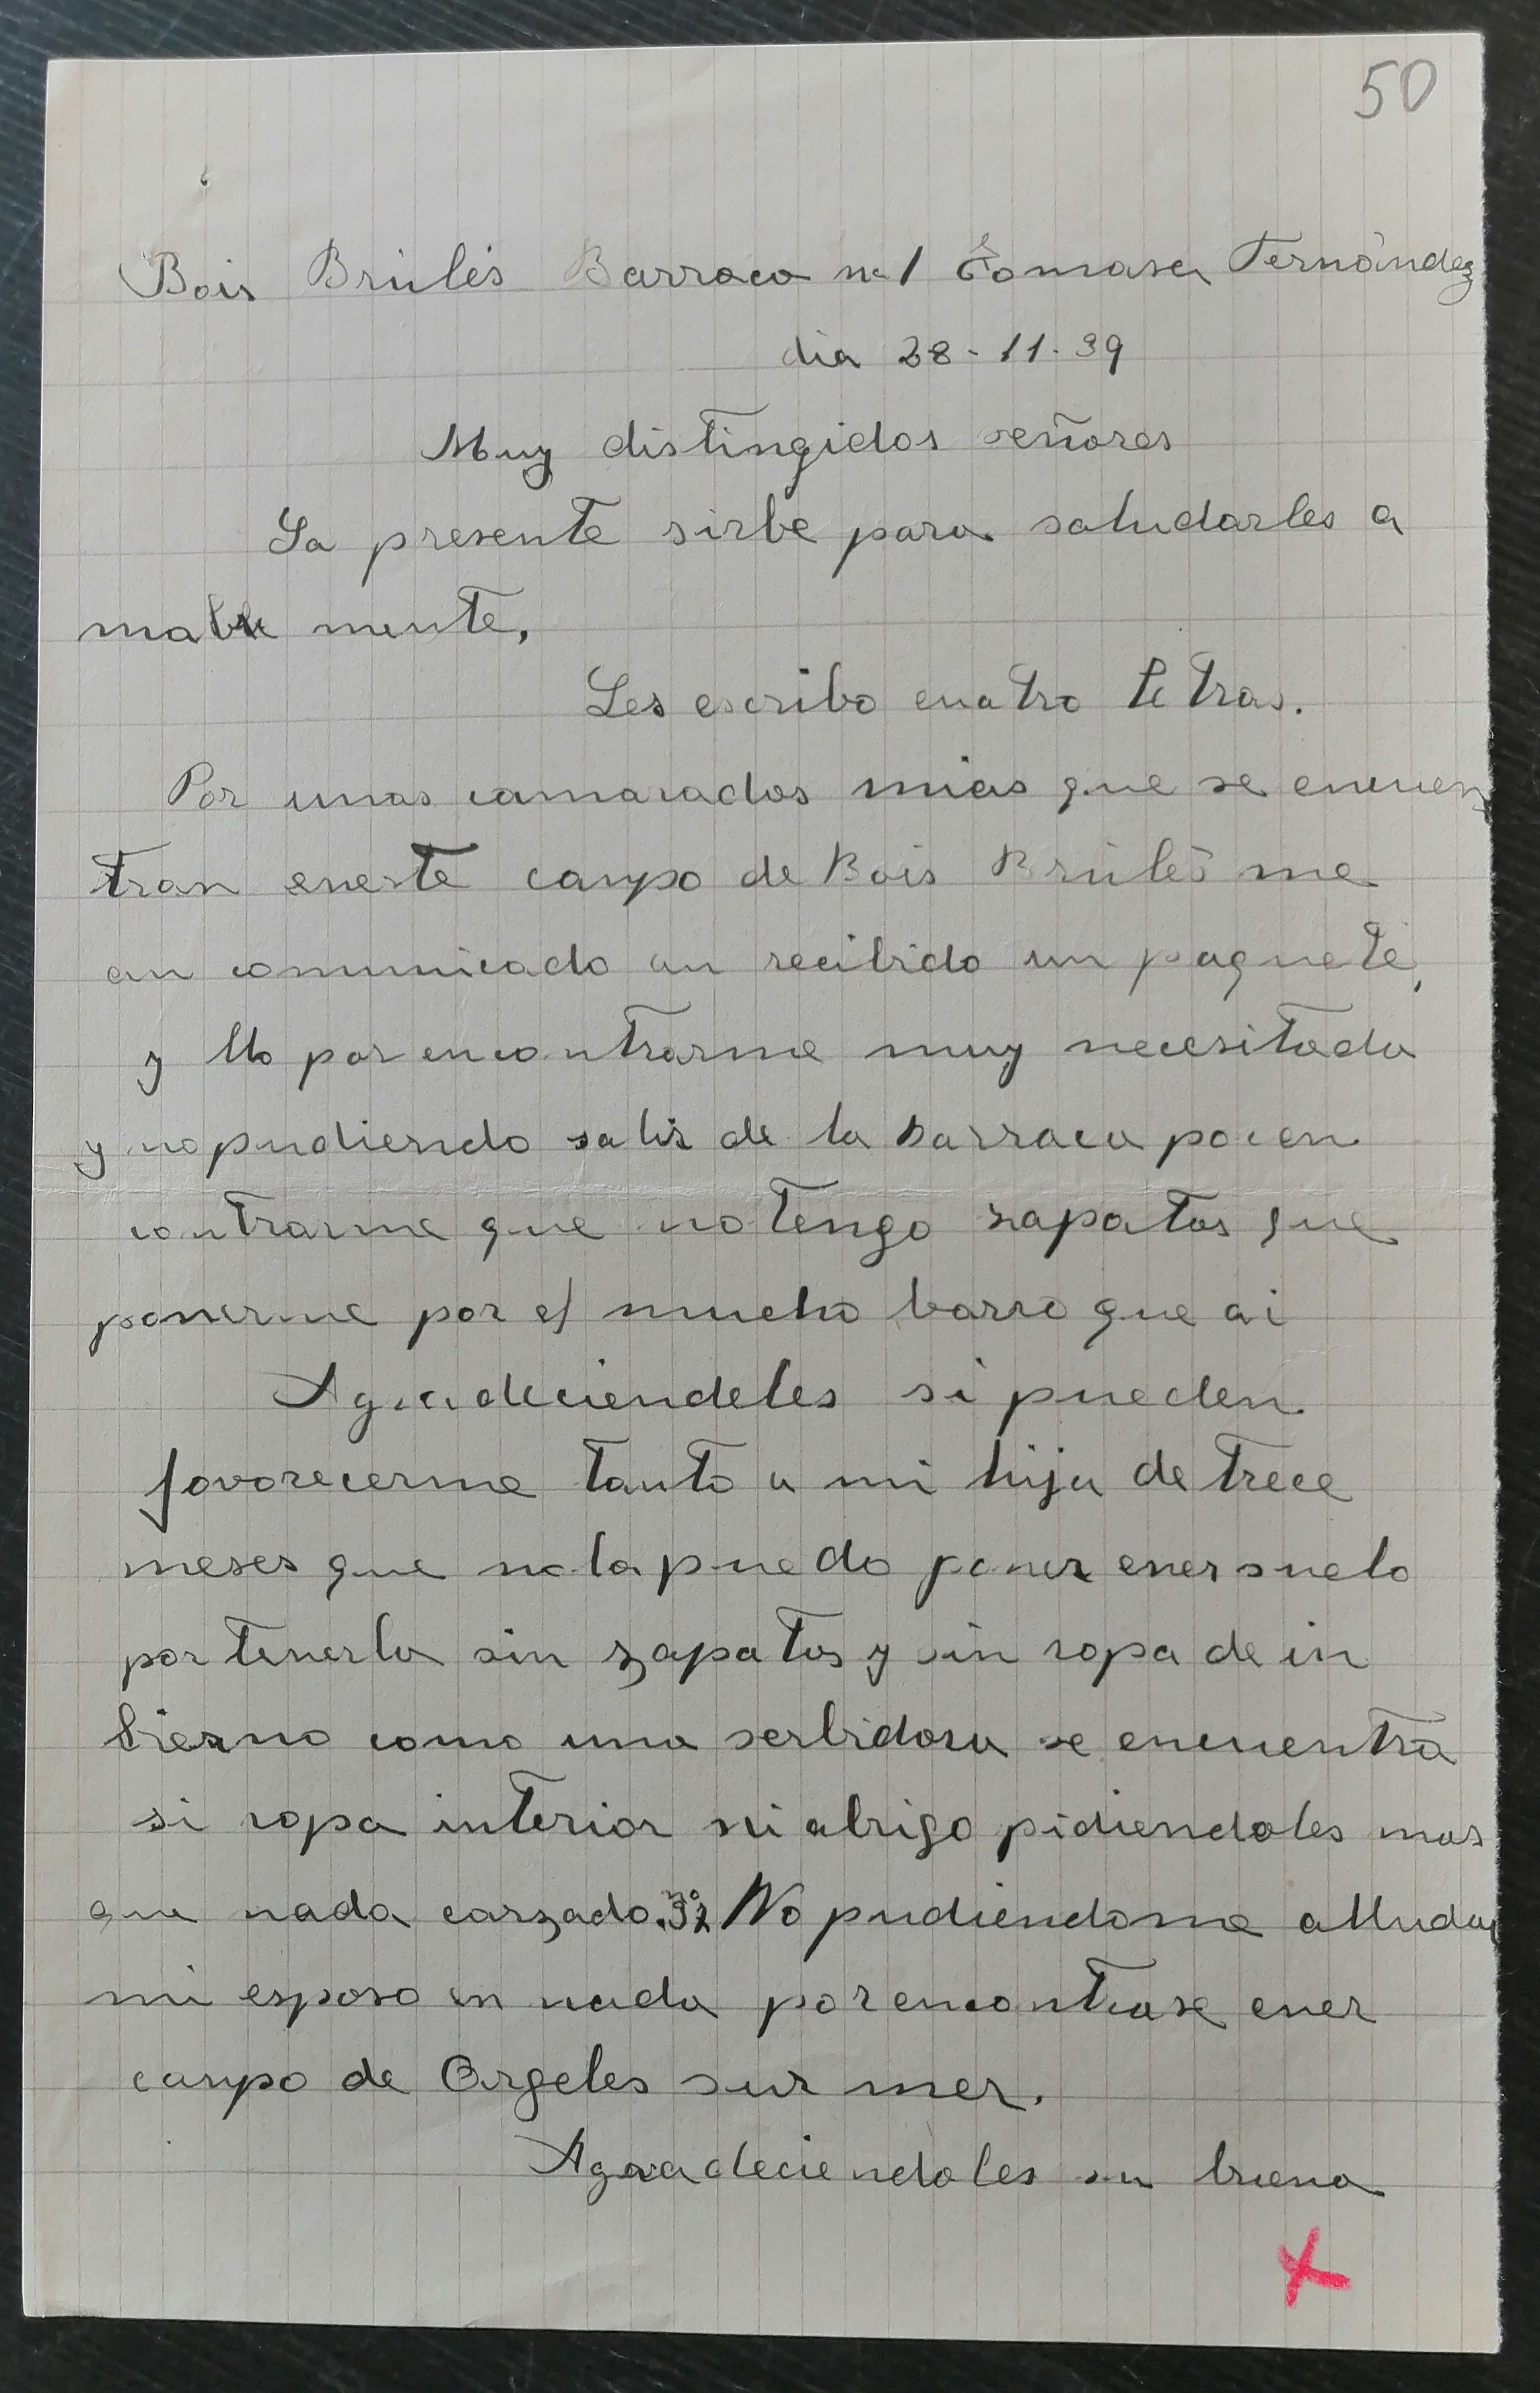 50
Bois Brulés Barraca nº 1 Tomasa Fernández
dia 28-11-39
Muy distingidos señores
La presente sirbe para saludarles a
mable mente,
Les escribo cuatro letras.
Por unas camaradas mias que se encuen
tran eneste campo de Bois Brulés me
an comunicado an recibido un paquete,
y llo por encontrarme muy necesitada
y no pudiendo salir de la barraca po en
contrarme que no tengo zapatos que
ponerme por el mucho barro que ai
Agradeciendeles si pueden
favorecerme tanto a mi hija de trece
meses que no la puedo poner ener suelo
por tenerla sin zapatos y sin ropa de in
bierno como una serbidora se encuentra
si ropa interior ni abrigo pidiendoles mas
que nada carzado. No pudiendome alludar
mi esposo en nada por encontrase ener
campo de Argeles sur mer.
Agradeciendoles su buena